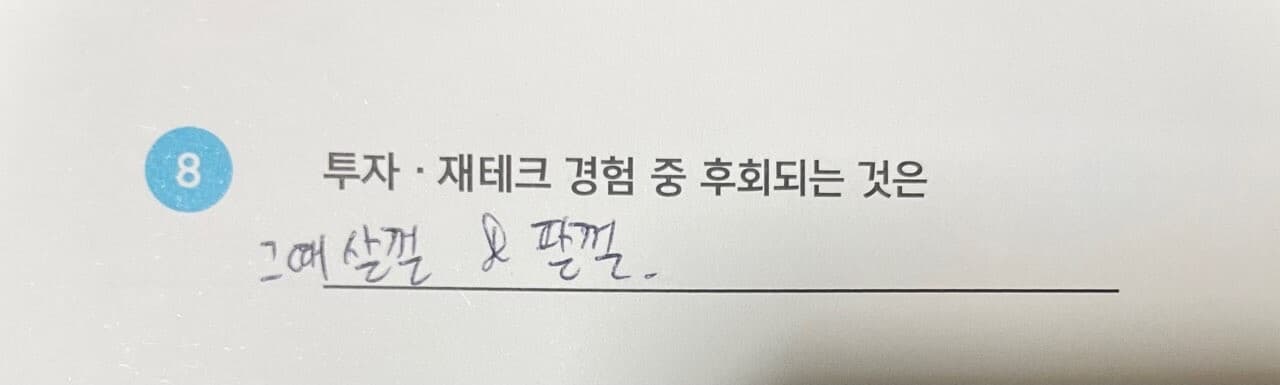 8 투자 · 재테크 경험 중 후회되는 것은
그때 살껄 & 팔껄.